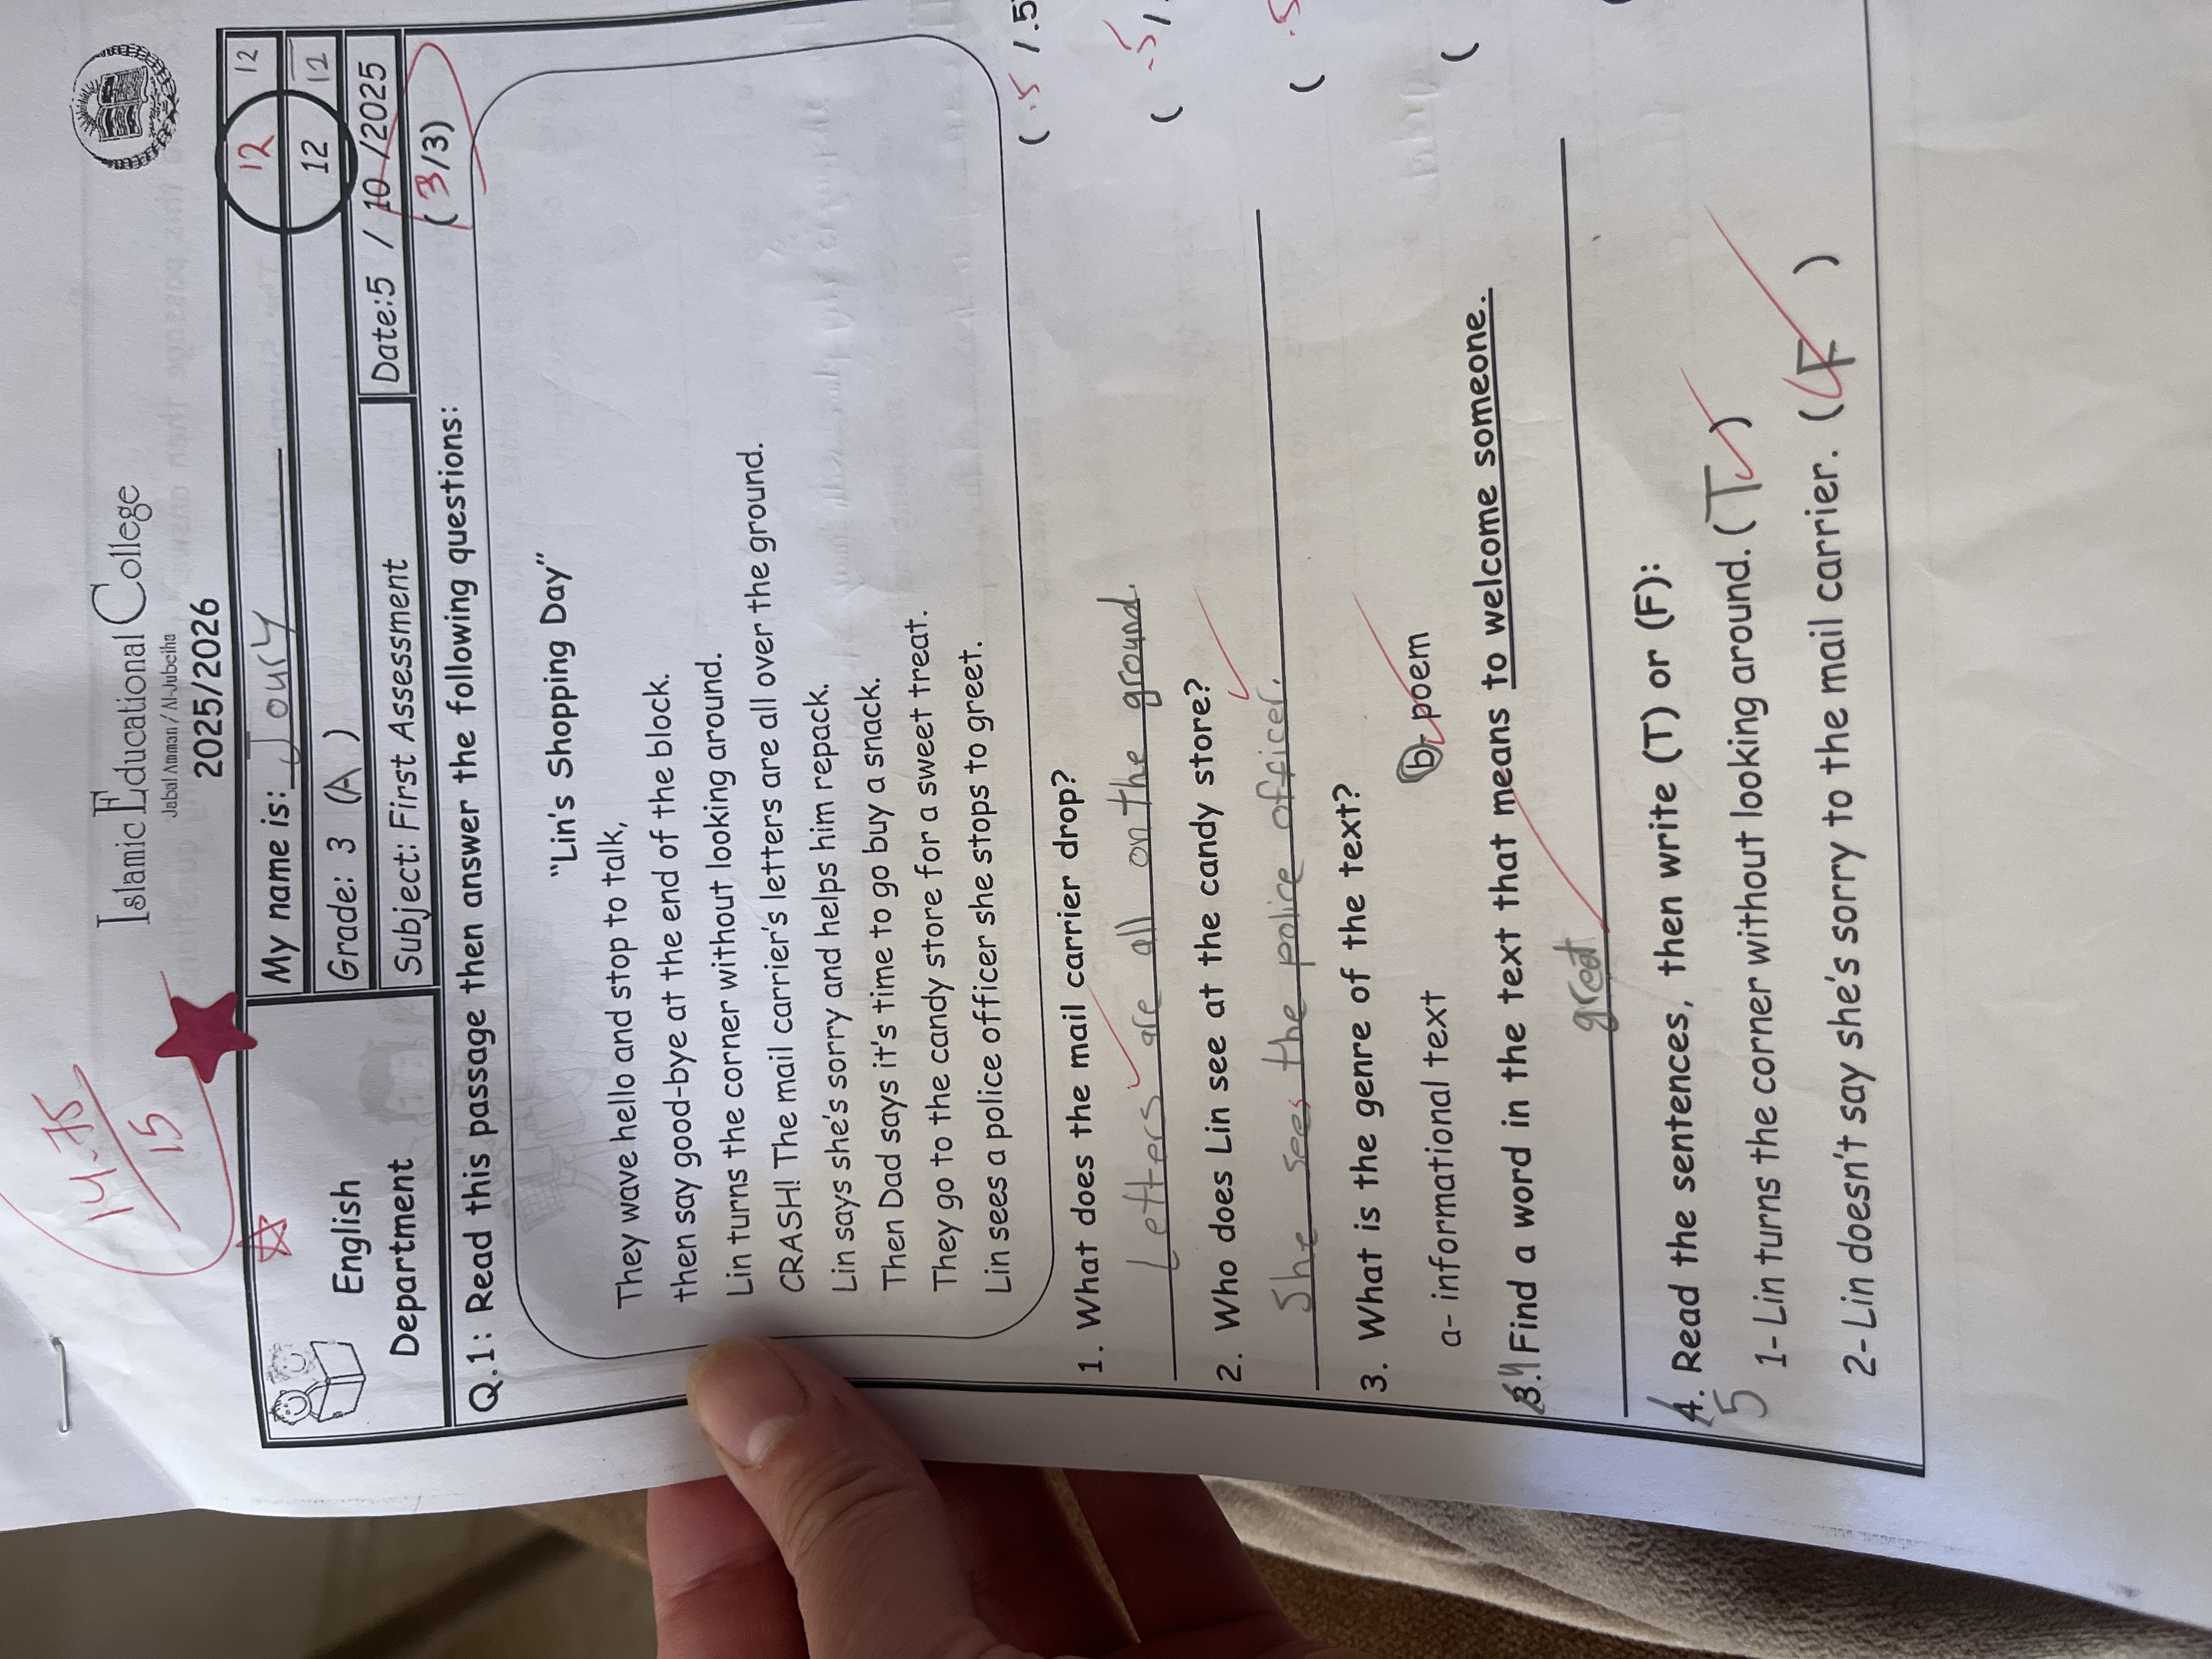 14.75
15
Islamic Educational College
Jabal Amman / Al-Jubeiha
2025/2026
English
Department
My name is: Joury
12 12
Grade: 3 (A)
12 12
Subject: First Assessment
Date:5 / 10 /2025
Q.1: Read this passage then answer the following questions: (3/3)
"Lin's Shopping Day"
They wave hello and stop to talk,
then say good-bye at the end of the block.
Lin turns the corner without looking around.
CRASH! The mail carrier's letters are all over the ground.
Lin says she's sorry and helps him repack.
Then Dad says it's time to go buy a snack.
They go to the candy store for a sweet treat.
Lin sees a police officer she stops to greet.
1. What does the mail carrier drop? (.5 /.5
Letters are all on the ground.
2. Who does Lin see at the candy store? ( .5/.
She sees the police officer.
3. What is the genre of the text? ( .5
a- informational text b- poem
3.4 Find a word in the text that means to welcome someone. (
greet
4. Read the sentences, then write (T) or (F):
5
1- Lin turns the corner without looking around. (T)
2- Lin doesn't say she's sorry to the mail carrier. (F)